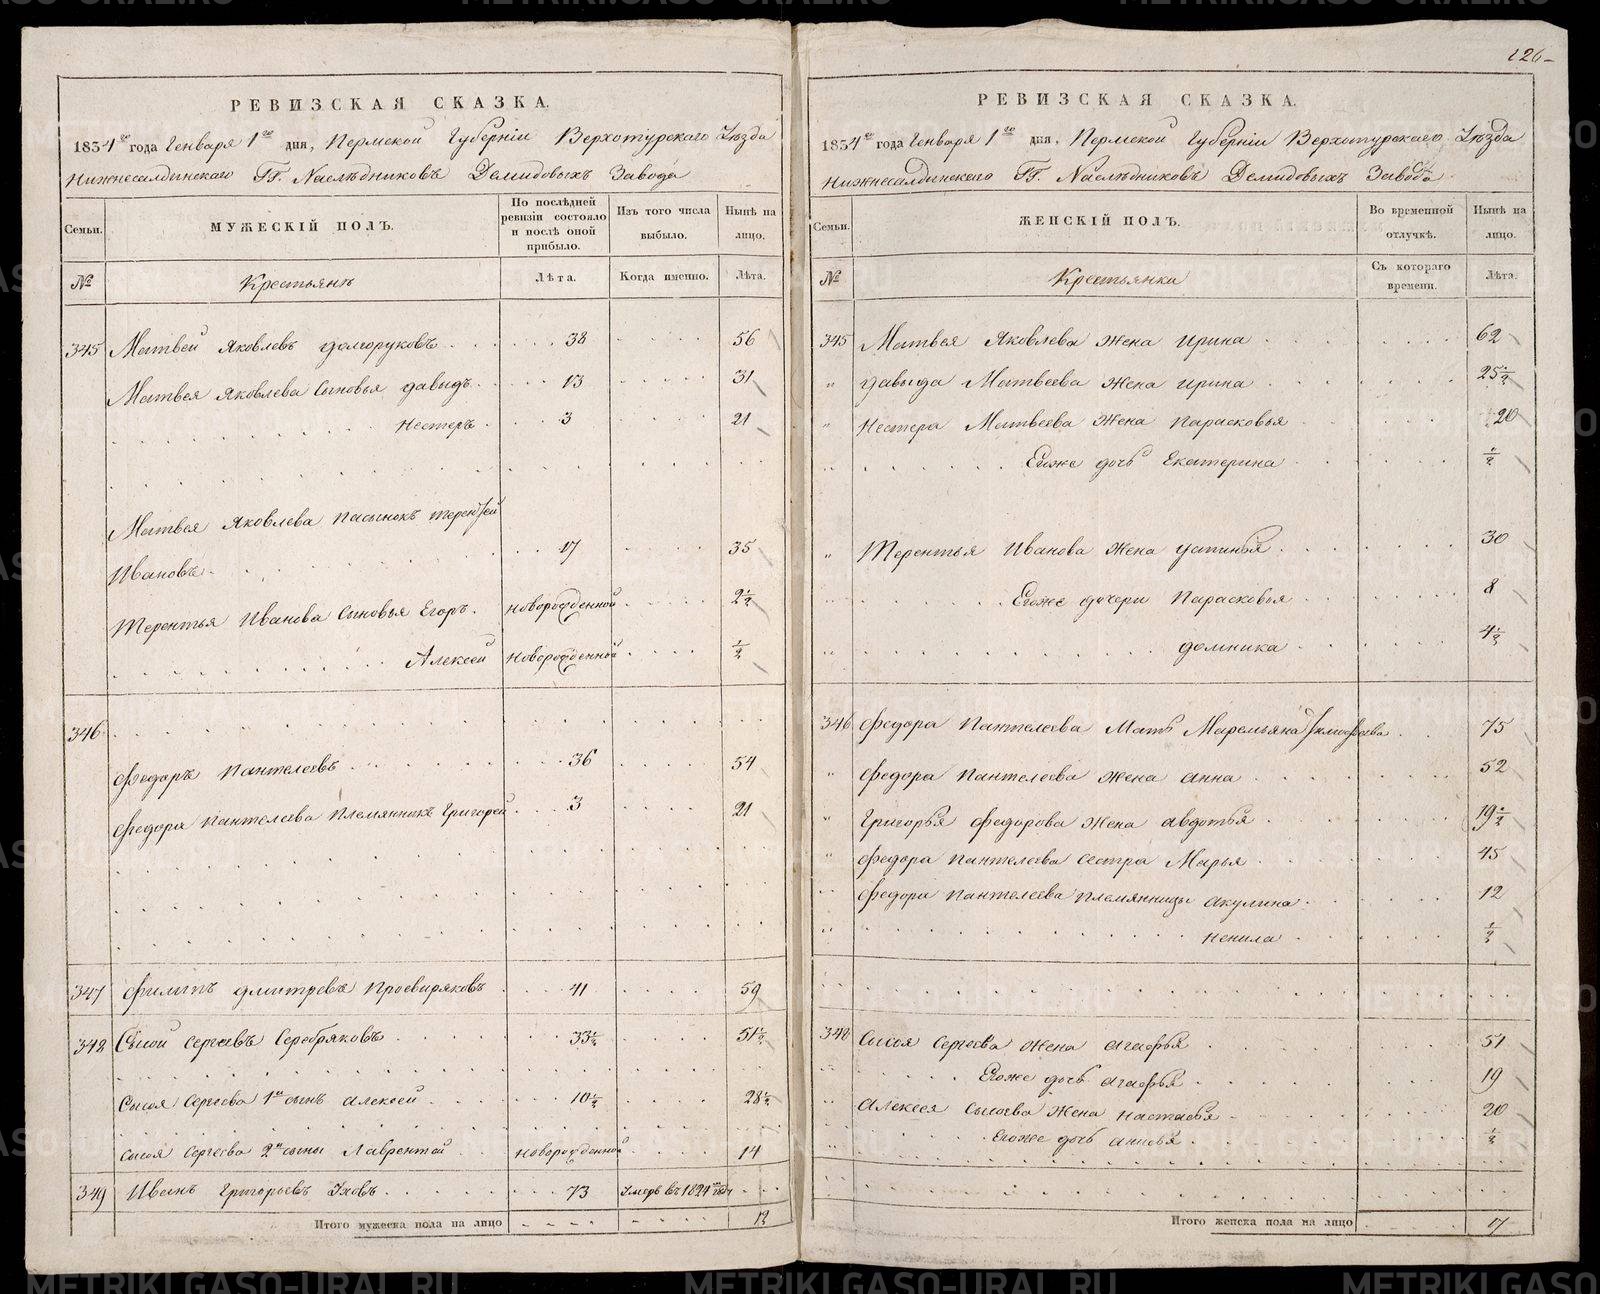 126
РЕВИЗСКАЯ СКАЗКА.
1834го года Генваря 1го дня, Пермской Губерніи Верхотурскаго Уѣзда
Нижнесалдинскаго ГГ. Наслѣдниковъ Демидовыхъ Завода
Семьи.
МУЖЕСКІЙ ПОЛЪ.
По последней ревизіи состояло и послѣ оной прибыло.
Изъ того числа выбыло.
Нынѣ на лицо.
№
Крестьянъ
Лѣта.
Когда именно.
Лѣта.
345 Матвей Яковлевъ Долгоруковъ 38 56
Матвея Яковлева Сыновья Давыдъ 13 31
Нестеръ 3 21
Матвея Яковлева Пасынокъ Терентей
Ивановъ 17 35
Терентья Иванова Сыновья Егоръ новорожденной 2½
Алексей новорожденной ½
346
Федоръ Пантелеевъ 36 54
Федора Пантелеева Племянникъ Григорей 3 21
347 Филипъ Дмитревъ Просвиряковъ 41 59
348 Сысой Сергеевъ Серебряковъ 33½ 51½
Сысоя Сергеева 1й сынъ Алексей 10½ 28½
Сысоя Сергеева 2й сынъ Лаврентей новорожденной 14
349 Иванъ Григорьевъ 73 Умеръ въ 1824 году
Итого мужеска пола на лицо 12
РЕВИЗСКАЯ СКАЗКА.
1834го года Генваря 1го дня, Пермской Губерніи Верхотурскаго Уѣзда
Нижнесалдинскаго ГГ. Наслѣдниковъ Демидовыхъ Завода
Семьи.
ЖЕНСКІЙ ПОЛЪ.
Во временной отлучкѣ.
Нынѣ на лицо.
№
Крестьянки
Съ котораго времени.
Лѣта.
345 Матвея Яковлева Жена Ирина 62
" Давыда Матвеева Жена Ирина 25½
" Нестера Матвеева Жена Парасковья 20
Егоже дочь Екатерина ½
" Терентья Иванова Жена Устинья 30
Егоже дочери Парасковья 8
Домника 4½
346 Федора Пантелеева Мать Маремьяна Тимофеева 75
" Федора Пантелеева Жена Анна 52
" Григорья Федорова Жена Авдотья 19½
" Федора Пантелеева Сестра Марья 45
" Федора Пантелеева Племянницы Акулина 12
" Ненила ½
348 Сысоя Сергеева Жена Агафья 51
Егоже дочь Агафья 19
" Алексея Сысоева Жена Настасья 20
Егоже дочь ½
Итого женска пола на лицо 17
METRIKI.GASO-URAL.RU